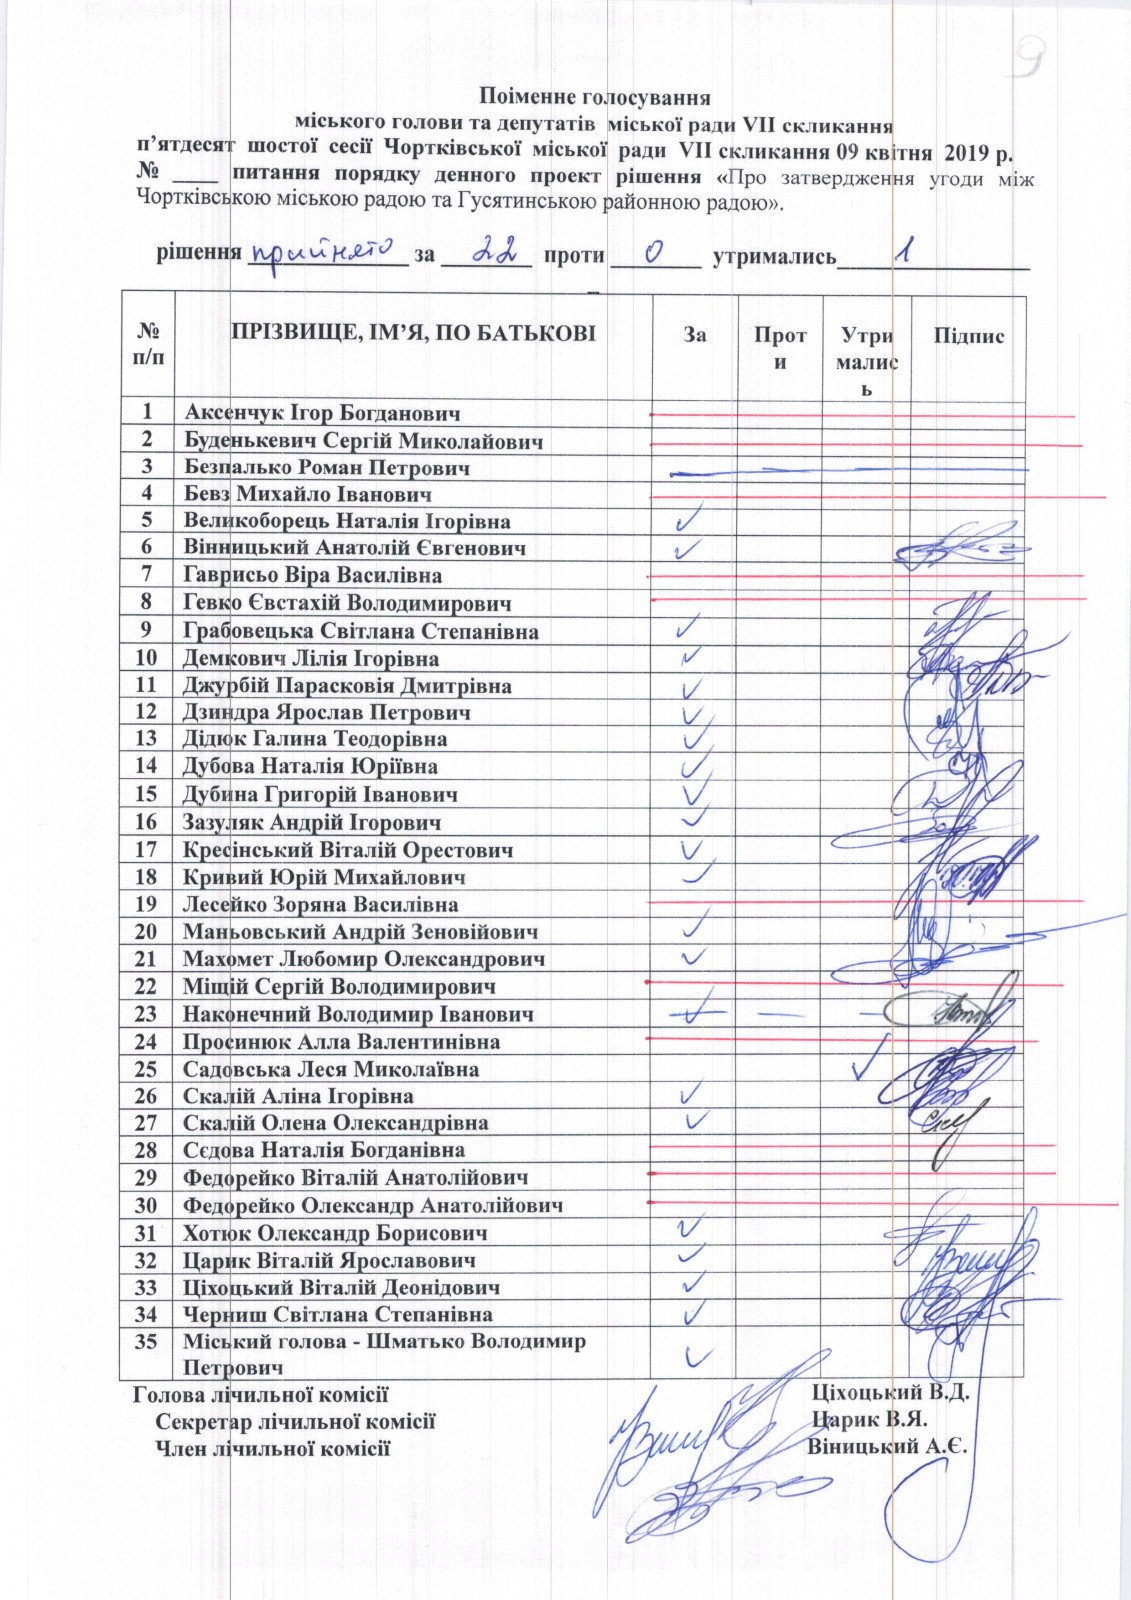 9
Поіменне голосування
міського голови та депутатів міської ради VII скликання
п’ятдесят шостої сесії Чортківської міської ради VII скликання 09 квітня 2019 р.
№ ____ питання порядку денного проект рішення «Про затвердження угоди між
Чортківською міською радою та Гусятинською районною радою».
рішення прийнято за 22 проти 0 утримались 1
№ п/п ПРІЗВИЩЕ, ІМ’Я, ПО БАТЬКОВІ За Прот и Утри малис ь Підпис
1 Аксенчук Ігор Богданович
2 Буденькевич Сергій Миколайович
3 Безпалько Роман Петрович
4 Бевз Михайло Іванович
5 Великоборець Наталія Ігорівна ✓
6 Вінницький Анатолій Євгенович ✓
7 Гаврисьо Віра Василівна
8 Гевко Євстахій Володимирович
9 Грабовецька Світлана Степанівна ✓
10 Демкович Лілія Ігорівна ✓
11 Джурбій Парасковія Дмитрівна ✓
12 Дзиндра Ярослав Петрович ✓
13 Дідюк Галина Теодорівна ✓
14 Дубова Наталія Юріївна ✓
15 Дубина Григорій Іванович ✓
16 Зазуляк Андрій Ігорович ✓
17 Кресінський Віталій Орестович ✓
18 Кривий Юрій Михайлович ✓
19 Лесейко Зоряна Василівна
20 Маньовський Андрій Зеновійович ✓
21 Махомет Любомир Олександрович ✓
22 Міщій Сергій Володимирович
23 Наконечний Володимир Іванович ✓ — —
24 Просинюк Алла Валентинівна
25 Садовська Леся Миколаївна ✓
26 Скалій Аліна Ігорівна ✓
27 Скалій Олена Олександрівна ✓
28 Сєдова Наталія Богданівна
29 Федорейко Віталій Анатолійович
30 Федорейко Олександр Анатолійович
31 Хотюк Олександр Борисович ✓
32 Царик Віталій Ярославович ✓
33 Ціхоцький Віталій Деонідович ✓
34 Черниш Світлана Степанівна ✓
35 Міський голова - Шматько Володимир
Петрович ✓
Голова лічильної комісії Ціхоцький В.Д.
Секретар лічильної комісії Царик В.Я.
Член лічильної комісії Віницький А.Є.